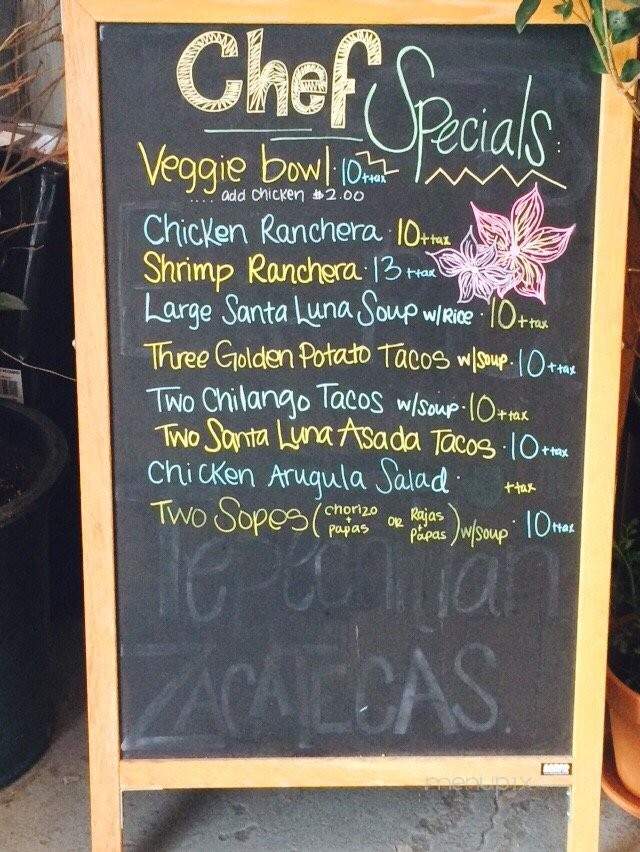 Chef Specials:
Veggie bowl 10+tax
.... add chicken $2.00
Chicken Ranchera 10+tax
Shrimp Ranchera 13+tax
Large Santa Luna Soup w/Rice 10+tax
Three Golden Potato Tacos w/soup 10+tax
Two Chilango Tacos w/soup 10+tax
Two Santa Luna Asada Tacos 10+tax
Chicken Arugula Salad +tax
Two Sopes (chorizo + papas or Rajas + papas) w/soup 10+tax
Tepechitlan
ZACATECAS.
menupix